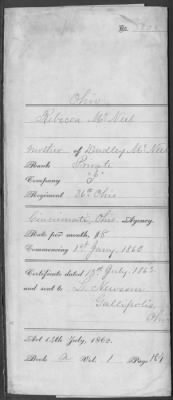 No.
Ohio
Rebecca McNeel
mother of Dudley McNeel
Rank Private
Company "I"
Regiment 36th Ohio
Cincinnati, Ohio Agency.
Rate per month, $8
Commencing 1st Jany, 1862
Certificate dated 13th July, 1863
and sent to L. Newsom
Gallipolis,
Ohio
Act 14th July, 1862.
Book A Vol. 1 Page 164